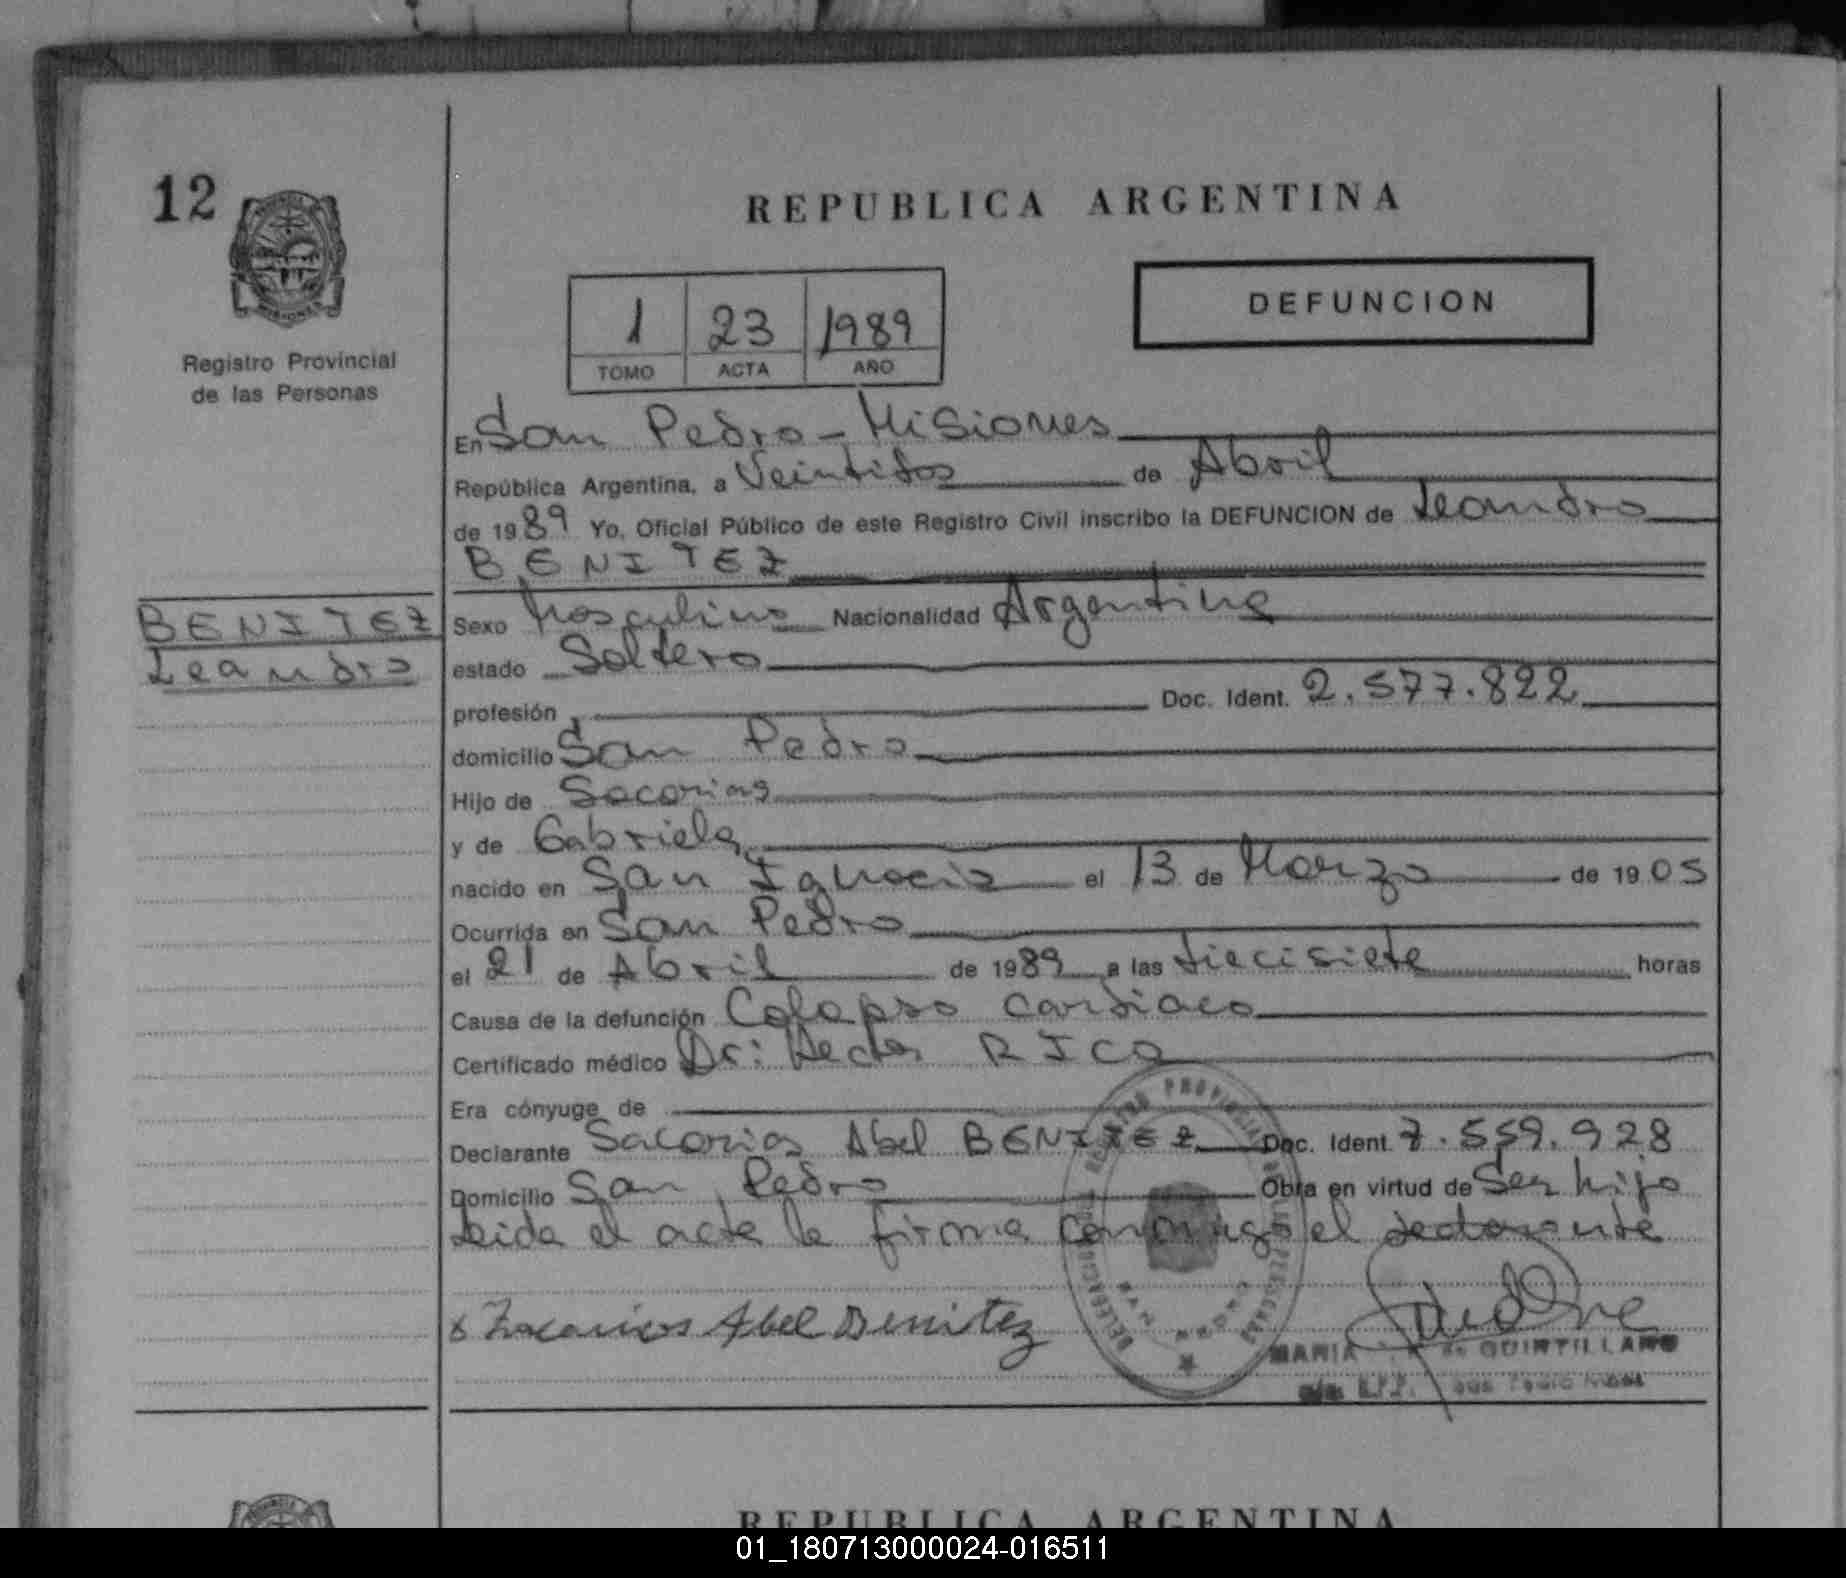 12
REPUBLICA ARGENTINA
DEFUNCION
1 23 1989
TOMO ACTA AÑO
Registro Provincial
de las Personas
En San Pedro - Misiones
República Argentina, a Veintidos de Abril
de 1989 Yo, Oficial Público de este Registro Civil inscribo la DEFUNCION de Leandro
BENITEZ
BENITEZ
Leandro
Sexo Masculino Nacionalidad Argentina
estado Soltero
profesión Doc. Ident. 2.577.822
domicilio San Pedro
Hijo de Sacarias
y de Gabriela
nacido en San Ignacio el 13 de Marzo de 1905
Ocurrida en San Pedro
el 21 de Abril de 1989 a las diecisiete horas
Causa de la defunción Colapso cardiaco
Certificado médico Dr: Hector RICO
Era cónyuge de
Declarante Sacarias Abel BENITEZ Doc. Ident. 7.559.928
Domicilio San Pedro Obra en virtud de Ser hijo
Leida el acta la firma conmigo el declarante
x Zacarias Abel Benitez
MARIA de QUINTILLANO
REPUBLICA ARGENTINA
01_180713000024-016511